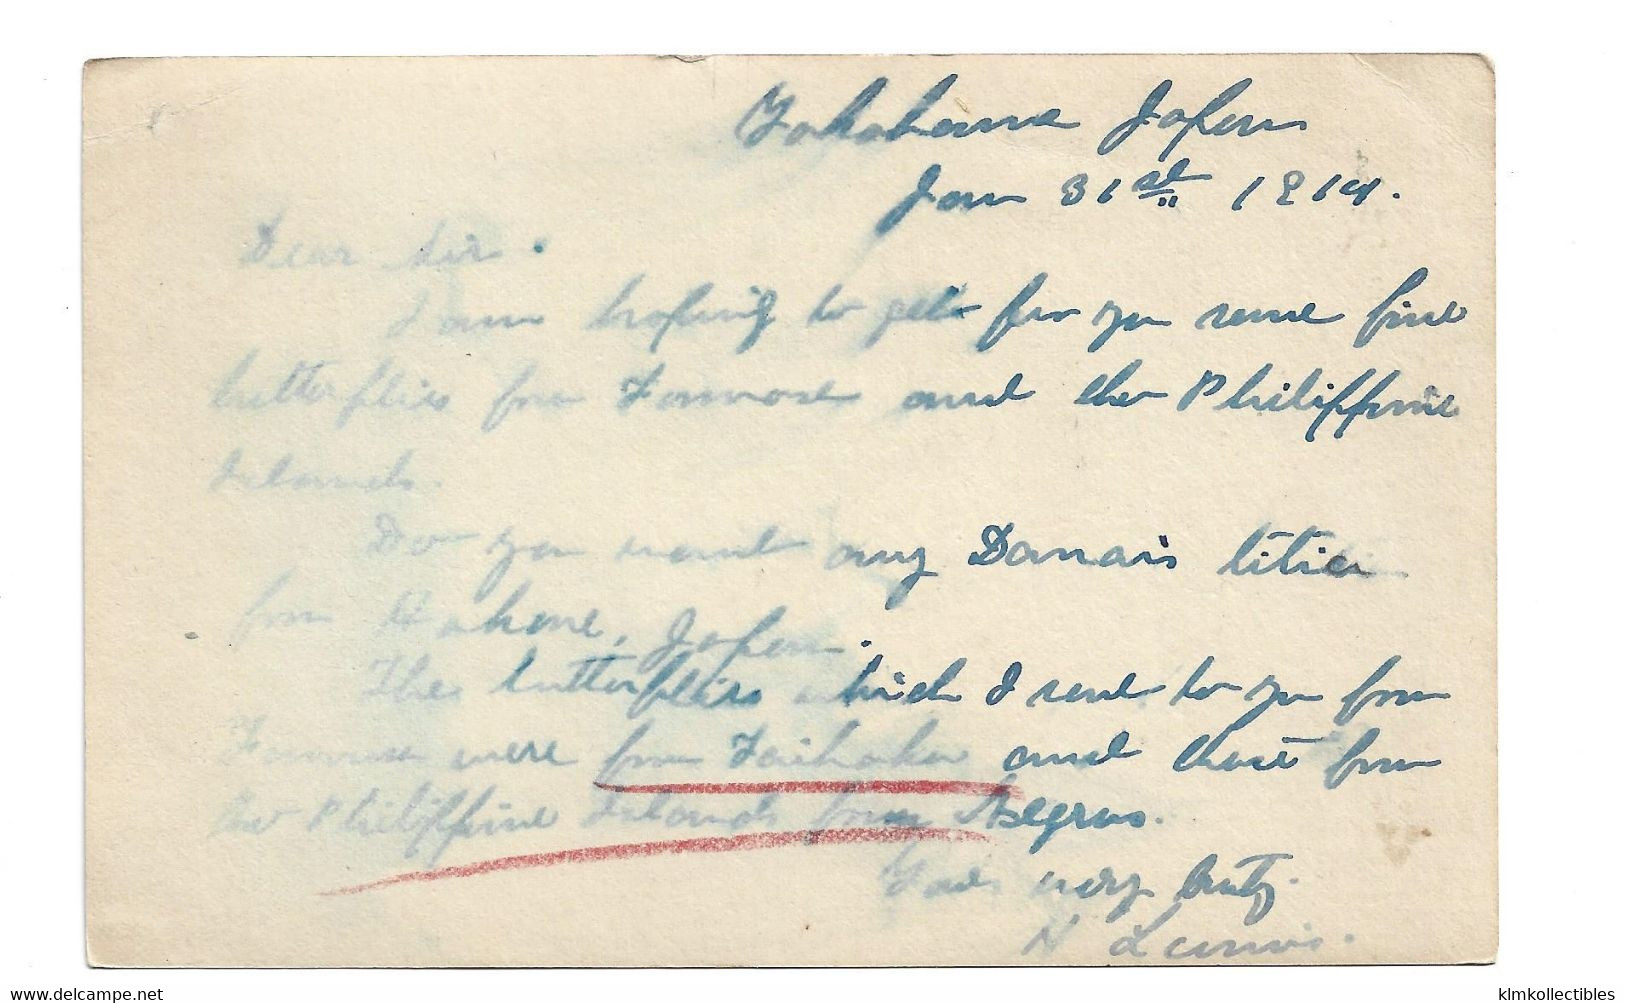 Yokohama Japan
Jan 31st 1914.
Dear Sir.
I am hoping to get for you some fine
butterflies from Formosa and the Philippine
Islands.
Do you want any Danais titia
from Hakone, Japan.
The butterflies which I sent to you from
Formosa were from Taihoku and those from
the Philippine Islands from Negros.
Yours very truly.
N
www.delcampe.net
klmkollectibles